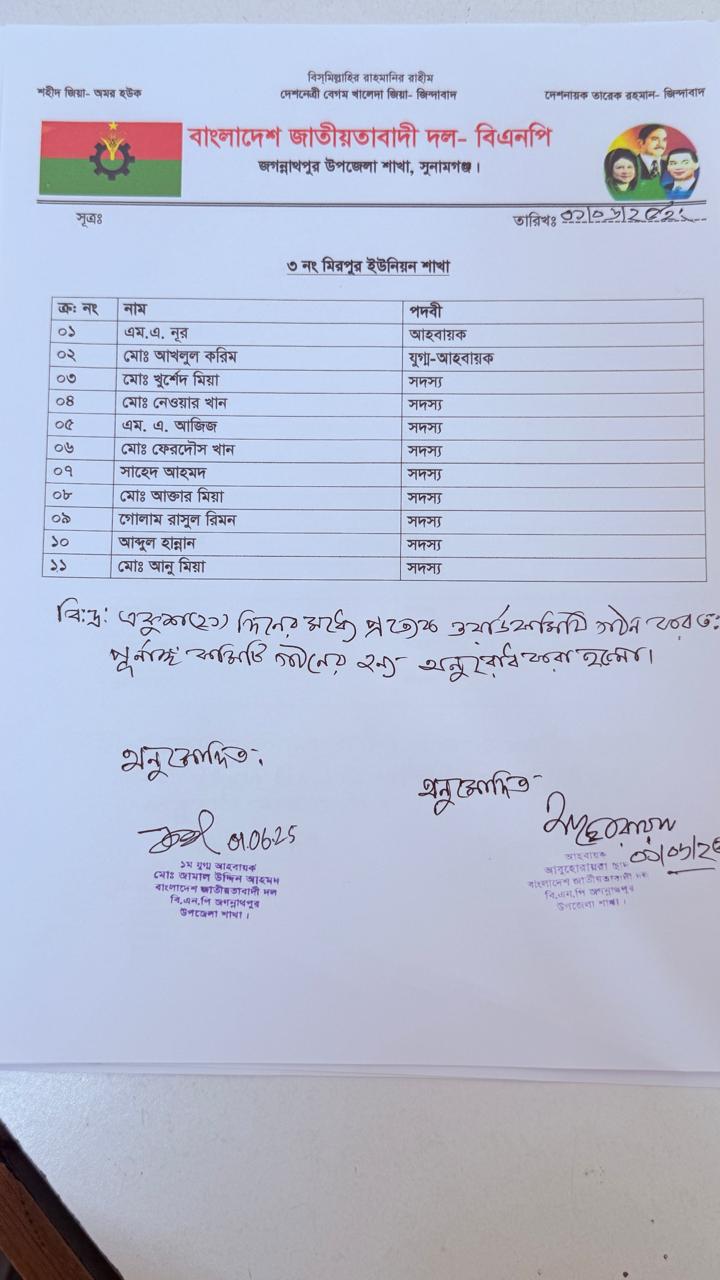 বিস্‌মিল্লাহির রাহমানির রাহীম
শহীদ জিয়া- অমর হউক
দেশনেত্রী বেগম খালেদা জিয়া- জিন্দাবাদ
দেশনায়ক তারেক রহমান- জিন্দাবাদ
বাংলাদেশ জাতীয়তাবাদী দল- বিএনপি
জগন্নাথপুর উপজেলা শাখা, সুনামগঞ্জ।
সূত্রঃ
তারিখঃ
৩ নং মিরপুর ইউনিয়ন শাখা
ক্র: নং নাম পদবী
০১ এম.এ. নূর আহবায়ক
০২ মোঃ আখলুল করিম যুগ্ম-আহবায়ক
০৩ মোঃ খুর্শেদ মিয়া সদস্য
০৪ মোঃ নেওয়ার খান সদস্য
০৫ এম. এ. আজিজ সদস্য
০৬ মোঃ ফেরদৌস খান সদস্য
০৭ সাহেদ আহমদ সদস্য
০৮ মোঃ আক্তার মিয়া সদস্য
০৯ গোলাম রাসুল রিমন সদস্য
১০ আব্দুল হান্নান সদস্য
১১ মোঃ আনু মিয়া সদস্য
বি:দ্র: একুশ(২১) দিনের মধ্যে প্রত্যেক ওয়ার্ড কমিটি গঠন করত:
পূর্নাঙ্গ কমিটি গঠনের জন্য অনুরোধ করা হলো।
অনুমোদিত:
অনুমোদিত-
01.06.25
১ম যুগ্ম আহবায়ক
মোঃ জামাল উদ্দিন আহমদ
বাংলাদেশ জাতীয়তাবাদী দল
বি.এন.পি জগন্নাথপুর
উপজেলা শাখা।
আহবায়ক
বাংলাদেশ জাতীয়তাবাদী দল
বি.এন.পি জগন্নাথপুর
উপজেলা শাখা।